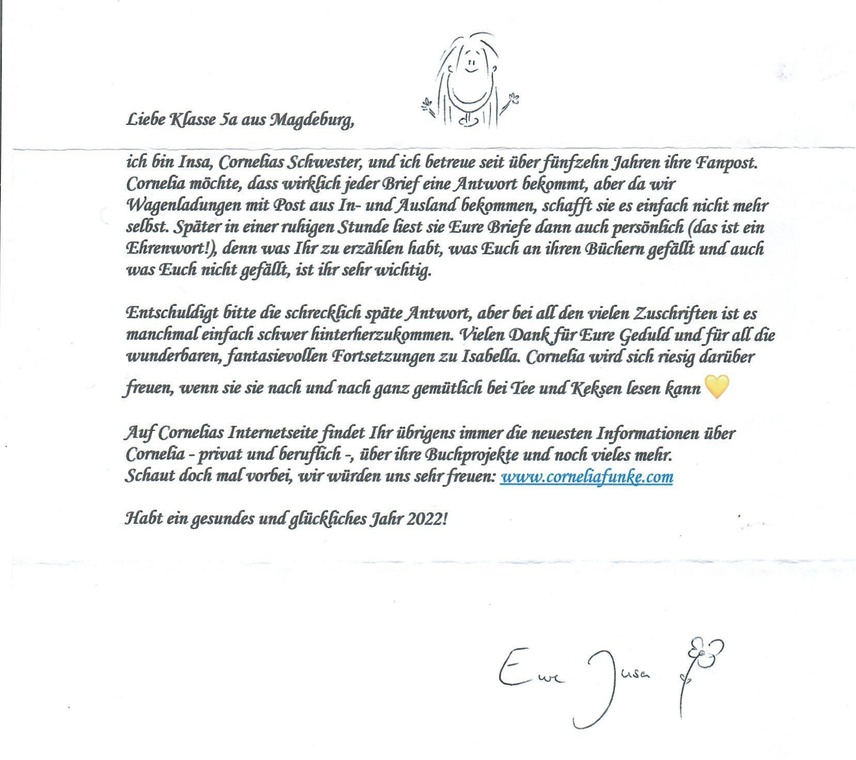 Liebe Klasse 5a aus Magdeburg,
ich bin Insa, Cornelias Schwester, und ich betreue seit über fünfzehn Jahren ihre Fanpost.
Cornelia möchte, dass wirklich jeder Brief eine Antwort bekommt, aber da wir
Wagenladungen mit Post aus In- und Ausland bekommen, schafft sie es einfach nicht mehr
selbst. Später in einer ruhigen Stunde liest sie Eure Briefe dann auch persönlich (das ist ein
Ehrenwort!), denn was Ihr zu erzählen habt, was Euch an ihren Büchern gefällt und auch
was Euch nicht gefällt, ist ihr sehr wichtig.
Entschuldigt bitte die schrecklich späte Antwort, aber bei all den vielen Zuschriften ist es
manchmal einfach schwer hinterherzukommen. Vielen Dank für Eure Geduld und für all die
wunderbaren, fantasievollen Fortsetzungen zu Isabella. Cornelia wird sich riesig darüber
freuen, wenn sie sie nach und nach ganz gemütlich bei Tee und Keksen lesen kann 💛
Auf Cornelias Internetseite findet Ihr übrigens immer die neuesten Informationen über
Cornelia - privat und beruflich -, über ihre Buchprojekte und noch vieles mehr.
Schaut doch mal vorbei, wir würden uns sehr freuen: www.corneliafunke.com
Habt ein gesundes und glückliches Jahr 2022!
Eure Insa